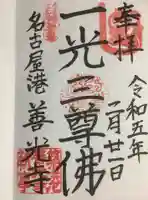 奉拝
令和五年
二月廿一日
一光三尊佛
名古屋港 善光寺